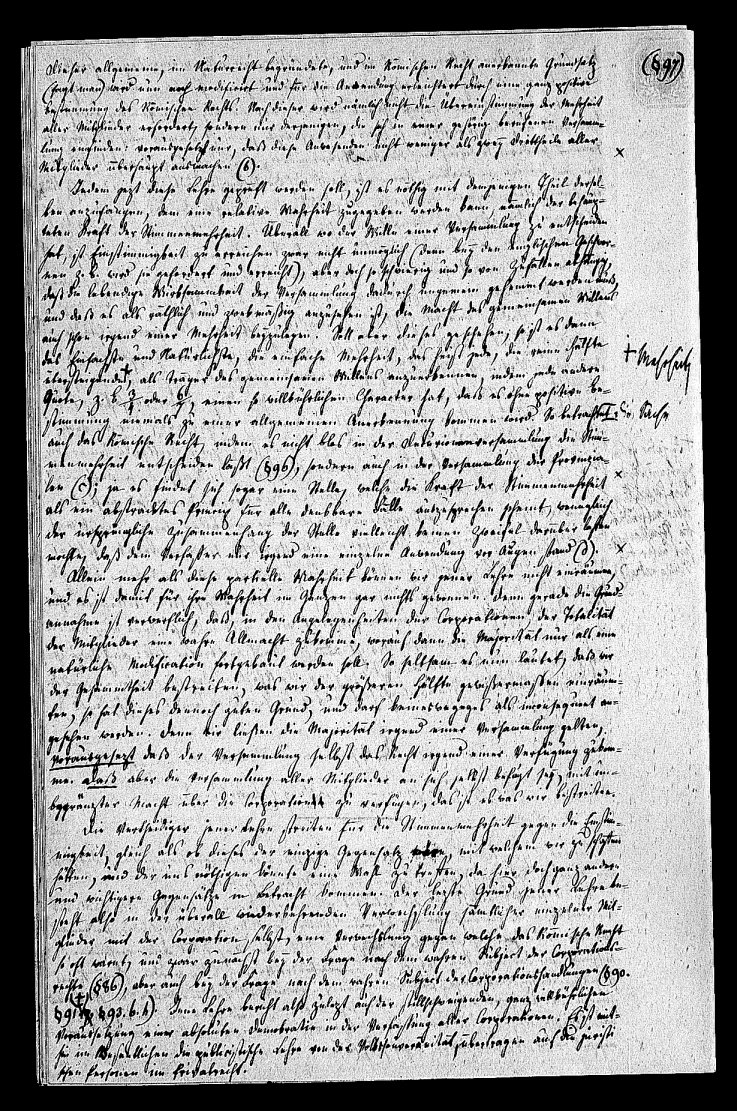 (§ 97)
Dieser allgemeine, im Naturrecht begründete, und im Römischen Recht anerkannte Grundsatz
(sagt man) wird nun noch modificirt und für die Anwendung erleichtert durch eine ganz positive
Bestimmung des Römischen Rechts. Nach dieser wird nämlich nicht die Übereinstimmung der Mehrheit
aller Mitglieder erfordert, sondern nur derjenigen, die sich in einer gehörig berufenen Versamm-
lung einfinden: vorausgesetzt nur, daß diese Anwesenden nicht weniger als zwey Drittheile aller
Mitglieder überhaupt ausmachen (b).
Indem jetzt diese Lehre geprüft werden soll, ist es nöthig mit demjenigen Theil dersel-
ben anzufangen, dem eine relative Wahrheit zugegeben werden kann, nämlich der behaup-
teten Kraft der Stimmenmehrheit. Überall wo der Wille einer Versammlung zu entscheiden
hat, ist Einstimmigkeit zu erreichen zwar nicht unmöglich (denn bey den englischen Geschwor-
nen z. B. wird sie gefordert und erreicht), aber doch so schwierig und so von Zufällen abhängig,
daß die lebendige Wirksamkeit der Versammlung dadurch ungemein gehemmt werden muß,
und daß es als räthlich und zweckmäßig anzusehen ist, die Macht des gemeinsamen Willens
auch schon irgend einer Mehrheit beyzulegen. Soll aber dieses geschehen, so ist es denn
das Einfachste und Natürlichste, die einfache Mehrheit, das heißt jede, die reine Hälfte
übersteigende, als Träger des gemeinsamen Willens anzuerkennen, indem jede andere
+ Mehrheit
Quote, z. B. 3/4 oder 6/7, einen so willkührlichen Character hat, daß es ohne positive Be-
stimmung niemals zu einer allgemeinen Anerkennung kommen wird. So betrachtet
die Sache
auch das Römische Recht, indem es nicht blos in der Decurionenversammlung die Stim-
menmehrheit entscheiden läßt (§ 96), sondern auch in der Versammlung der Provinzia-
len (c); ja es findet sich sogar eine Stelle, welche die Kraft der Stimmenmehrheit
als ein abstractes Princip für alle denkbare Fälle auszusprechen scheint, wenngleich
der ursprüngliche Zusammenhang der Stelle vielleicht keinen Zweifel darüber lassen
mochte, daß dem Verfasser nur irgend eine einzelne Anwendung vor Augen stand (d).
Allein mehr als diese partielle Wahrheit können wir jener Lehre nicht einräumen,
und es ist damit für ihre Wahrheit im Ganzen gar nichts gewonnen. Denn gerade die Grund-
annahme ist verwerflich, daß, in den Angelegenheiten der Corporationen, der Totalität
der Mitglieder eine wahre Allmacht zukomme, worauf dann die Majorität nur als eine
natürliche Modification fortgebaut werden soll. So seltsam es nun lautet, daß wir
der Gesammtheit bestreiten, was wir der größeren Hälfte gewissermaßen einräum-
ten, so hat dieses dennoch guten Grund, und darf keinesweges als inconsequent an-
gesehen werden. Denn wir ließen die Majorität irgend einer Versammlung gelten,
vorausgesetzt daß der Versammlung selbst das Recht irgend einer Verfügung zukom-
me; daß aber die Versammlung aller Mitglieder an sich selbst befugt sey, mit un-
begränzter Macht über die Corporation zu verfügen, das ist es was wir bestreiten.
Die Vertheidiger jener Lehre streiten für die Stimmenmehrheit gegen die Einstim-
migkeit, gleich als ob dieses der einzige Gegensatz wäre, mit welchem wir zu schaffen
hätten, und der uns nöthigen könnte eine Wahl zu treffen, da hier doch ganz andere
und wichtigere Gegensätze in Betracht kommen. Der letzte Grund jener Lehre be-
steht also in der überall wiederkehrenden Verwechslung sämtlicher einzelner Mit-
glieder mit der Corporation selbst, eine Verwechslung gegen welche das Römische Recht
so oft warnt, und zwar zunächst bey der Frage nach dem wahren Subject der Corporations-
rechte (§ 86), aber auch bey der Frage nach dem wahren Subject der Corporationshandlungen (§ 90.
§ 91. § 93. b. h). Jene Lehre beruht also zuletzt auf der stillschweigenden, ganz willkührlichen
Voraussetzung einer absoluten Demokratie in der Verfassung aller Corporationen. Es ist mit-
hin im Wesentlichen die publicistische Lehre von der Volkssouveränität, übertragen auf die juristi-
schen Personen im Privatrecht.